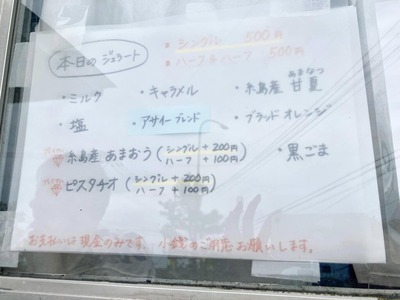 本日のジェラート
・シングル 500円
・ハーフ&ハーフ 500円
・ミルク ・キャラメル ・糸島産 甘夏
あまなつ
・塩 ・アサイーブレンド ・ブラッドオレンジ
糸島産 あまおう (シングル + 200円 ハーフ + 100円) ・黒ごま
ピスタチオ (シングル + 200円 ハーフ + 100円)
お支払いは現金のみです。小銭のご用意お願いします。